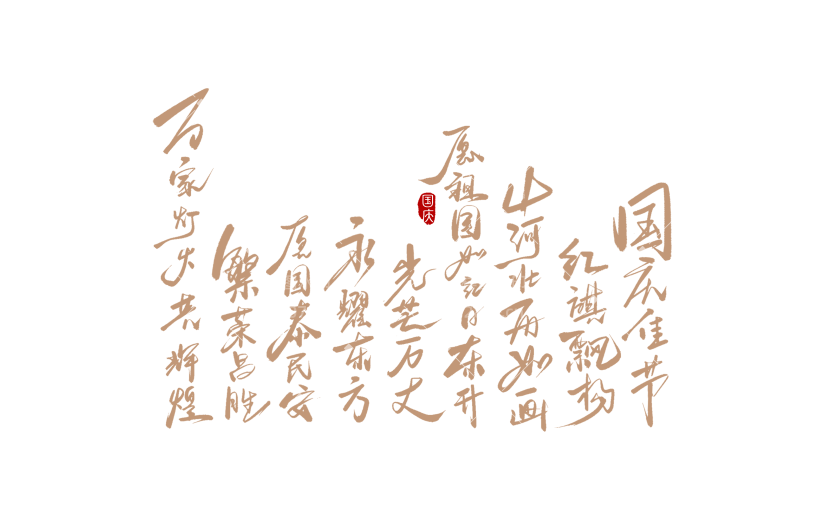 国庆佳节
红旗飘扬
山河壮丽如画
愿祖国如红日东升
国庆
光芒万丈
永耀东方
愿国泰民安
繁荣昌胜
万家灯火共辉煌